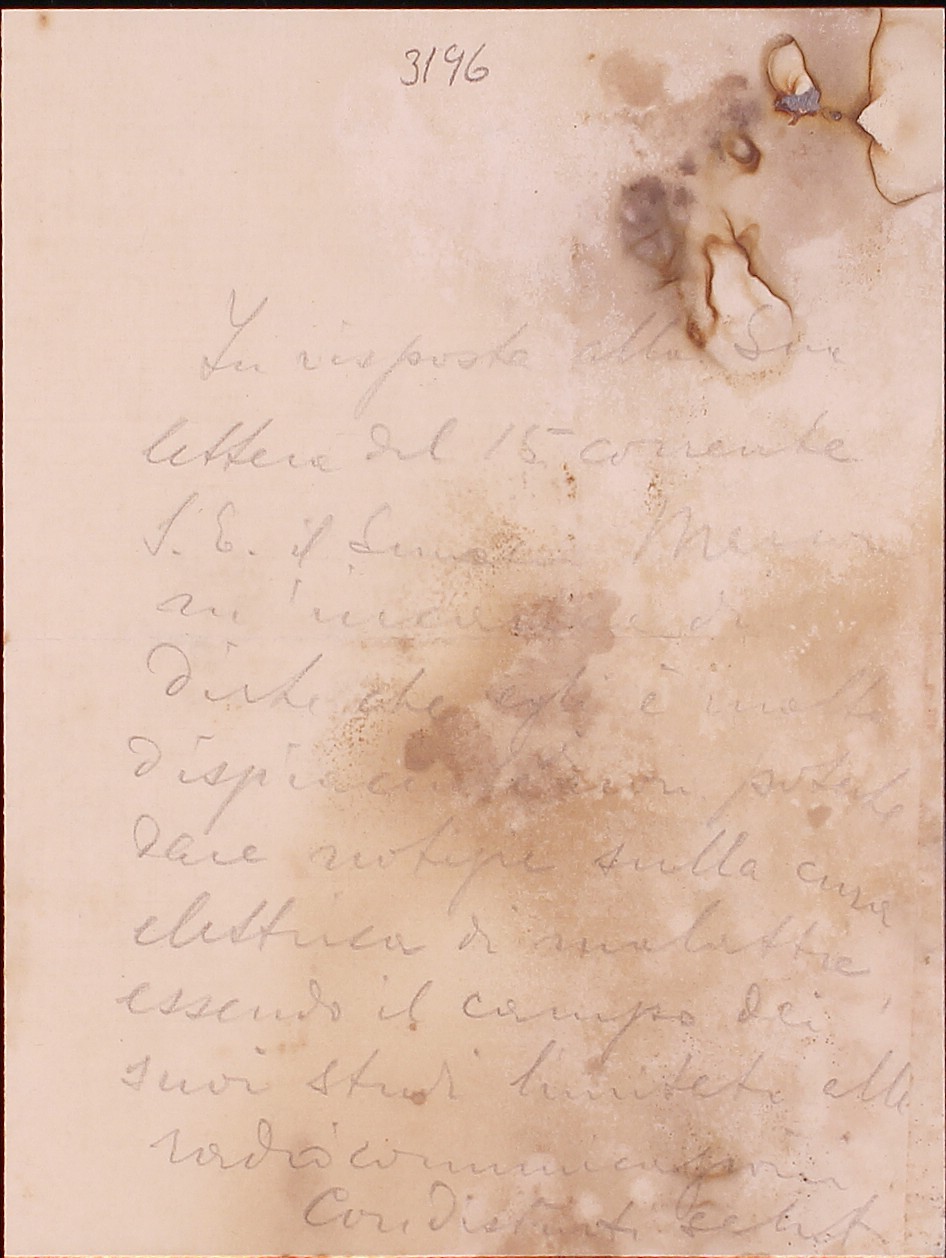 3196
In risposta alla Sua
lettera del 15 corrente
S. E. il Senatore Marconi
m'incarica di
dirle che egli è molto
dispiacente di non poterle
dare notizie sulla cura
elettrica di malattie,
essendo il campo dei
suoi studi limitato alle
radiocomunicazioni
Con distinti saluti